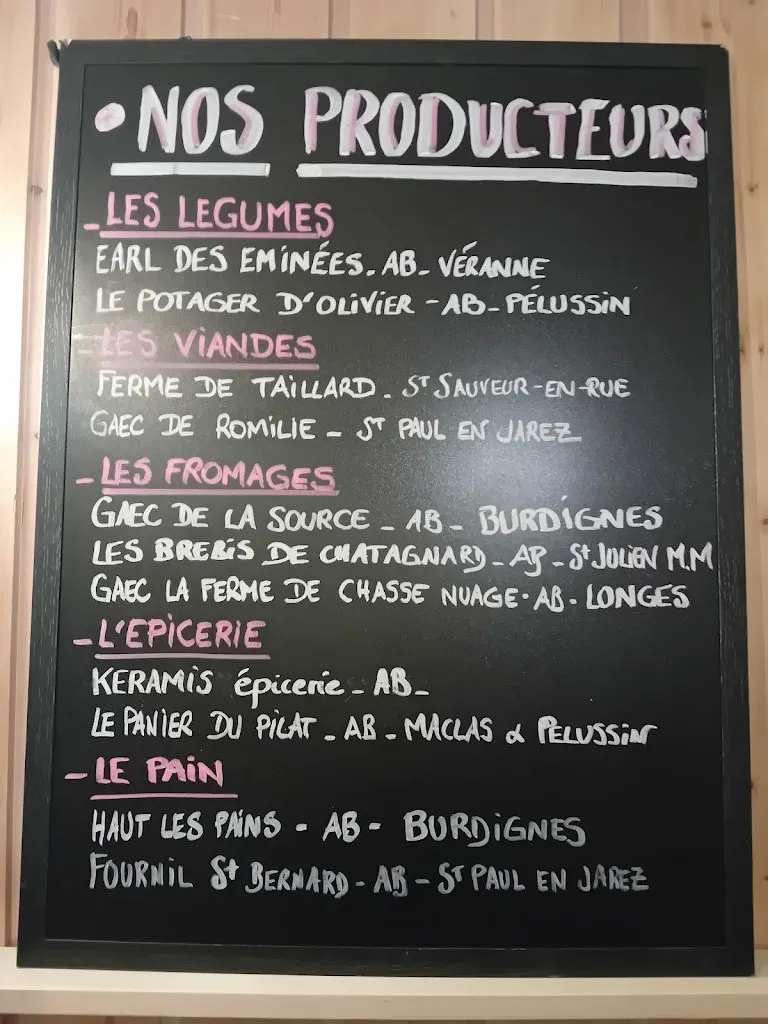 • NOS PRODUCTEURS
- LES LEGUMES
EARL DES EMINÉES - AB - VÉRANNE
LE POTAGER D'OLIVIER - AB - PÉLUSSIN
- LES VIANDES
FERME DE TAILLARD - ST SAUVEUR-EN-RUE
GAEC DE ROMILIE - ST PAUL EN JAREZ
- LES FROMAGES
GAEC DE LA SOURCE - AB - BURDIGNES
LES BREBIS DE CHATAGNARD - AB - St JULIEN M.M
GAEC LA FERME DE CHASSE NUAGE - AB - LONGES
- L'EPICERIE
KERAMIS épicerie - AB -
LE PANIER DU PILAT - AB - MACLAS & PELUSSIN
- LE PAIN
HAUT LES PAINS - AB - BURDIGNES
FOURNIL St BERNARD - AB - ST PAUL EN JAREZ